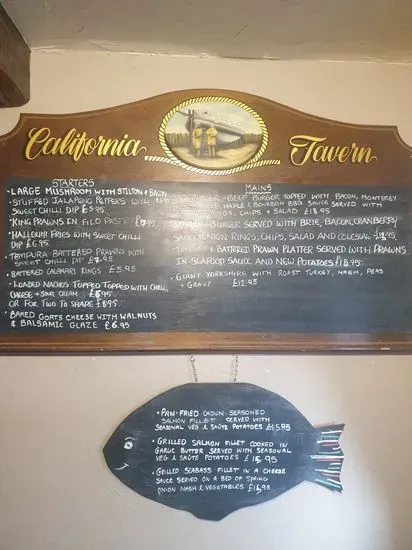 California Tavern
STARTERS
• LARGE MUSHROOM WITH STILTON & BACON
• STUFFED JALAPENO PEPPERS WITH
SWEET CHILLI DIP £5.95
• KING PRAWNS IN FILO PASTRY
• HALLOUMI FRIES WITH SWEET CHILLI
DIP £6.95
• TEMPURA BATTERED PRAWNS WITH
SWEET CHILLI DIP
• BATTERED CALAMARI RINGS £5.95
• LOADED NACHOS TOPPED TOPPED WITH CHILLI,
CHEESE & SOUR CREAM
OR FOR TWO TO SHARE
• BAKED GOATS CHEESE WITH WALNUTS
& BALSAMIC GLAZE £6.95
MAINS
BEEF BURGER TOPPED WITH BACON, MONTEREY
MAPLE & BOURBON BBQ SAUCE SERVED WITH
RINGS, CHIPS & SALAD
BURGER SERVED WITH BRIE, BACON, CRANBERRY
ONION RINGS, CHIPS, SALAD AND COLESLAW
BATTERED PRAWN PLATTER SERVED WITH PRAWNS
IN SEAFOOD SAUCE AND NEW POTATOES
• GIANT YORKSHIRE WITH ROAST TURKEY, MASH, PEAS
& GRAVY £12.95
• PAN-FRIED CAJUN SEASONED
SALMON FILLET SERVED WITH
SEASONAL VEG & SAUTE POTATOES £15.95
• GRILLED SALMON FILLET COOKED IN
GARLIC BUTTER SERVED WITH SEASONAL
VEG & SAUTE POTATOES £15.95
• GRILLED SEABASS FILLET IN A CHEESE
SAUCE SERVED ON A BED OF SPRING
ONION MASH & VEGETABLES